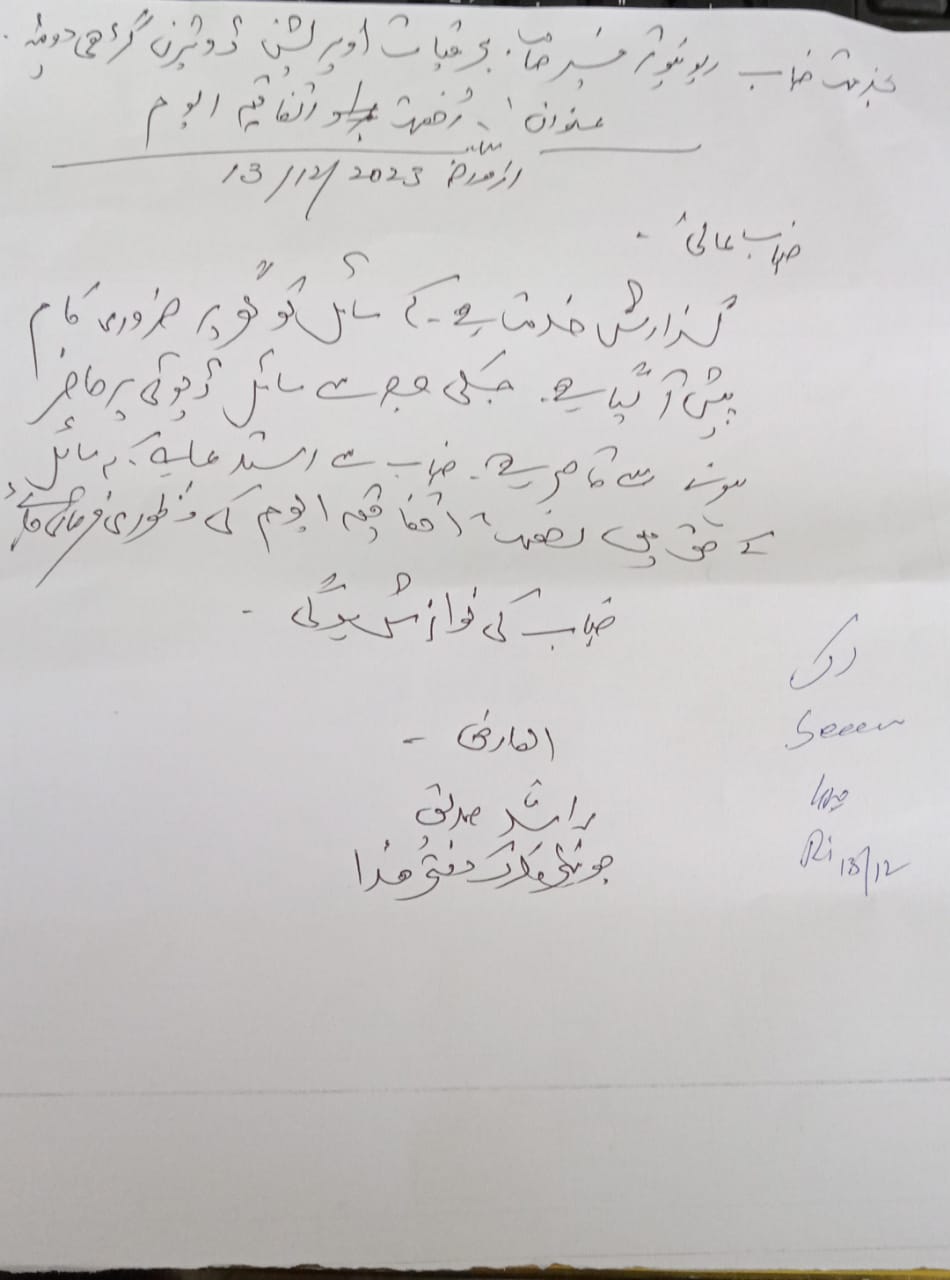 بخدمت جناب ریونیو آفیسر صاحب برقیات اوپریشن ڈویژن گڑھی دوپٹہ.
عنوان :۔ رخصت اتفاقیہ ایوم
ازمورخہ 13/12/2023
جناب عالی! ۔
گذارش خدمت ہے۔ کہ سائل کو گھر پر ضروری کام
پیش آ گیا ہے۔ جسکی وجہ سے سائل ڈیوٹی پر حاضر
ہونے سے قاصر ہے۔ جناب سے استدعا ہے کہ سائل
کے حق میں رخصت اتفاقیہ ایوم کی منظوری فرمائی جائے
جناب کی نوازش ہوگی ۔
العارض ۔
راشد صدیق
جونیئر کلرک دفتر ھذا
Seen
13/12